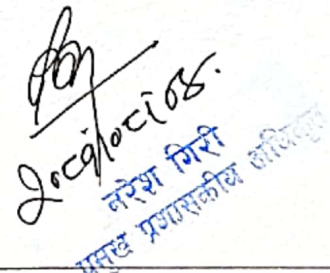 २०८१।०८।०४.
नरेश गिरी
प्रमुख प्रशासकीय अधिकृत